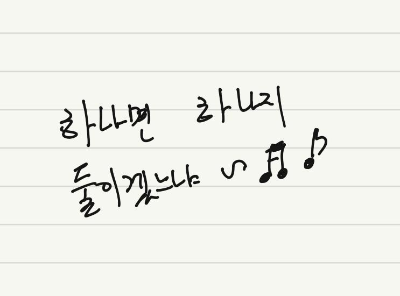 하나면 하나지
둘이겠느냐 ~ ♫ ♪